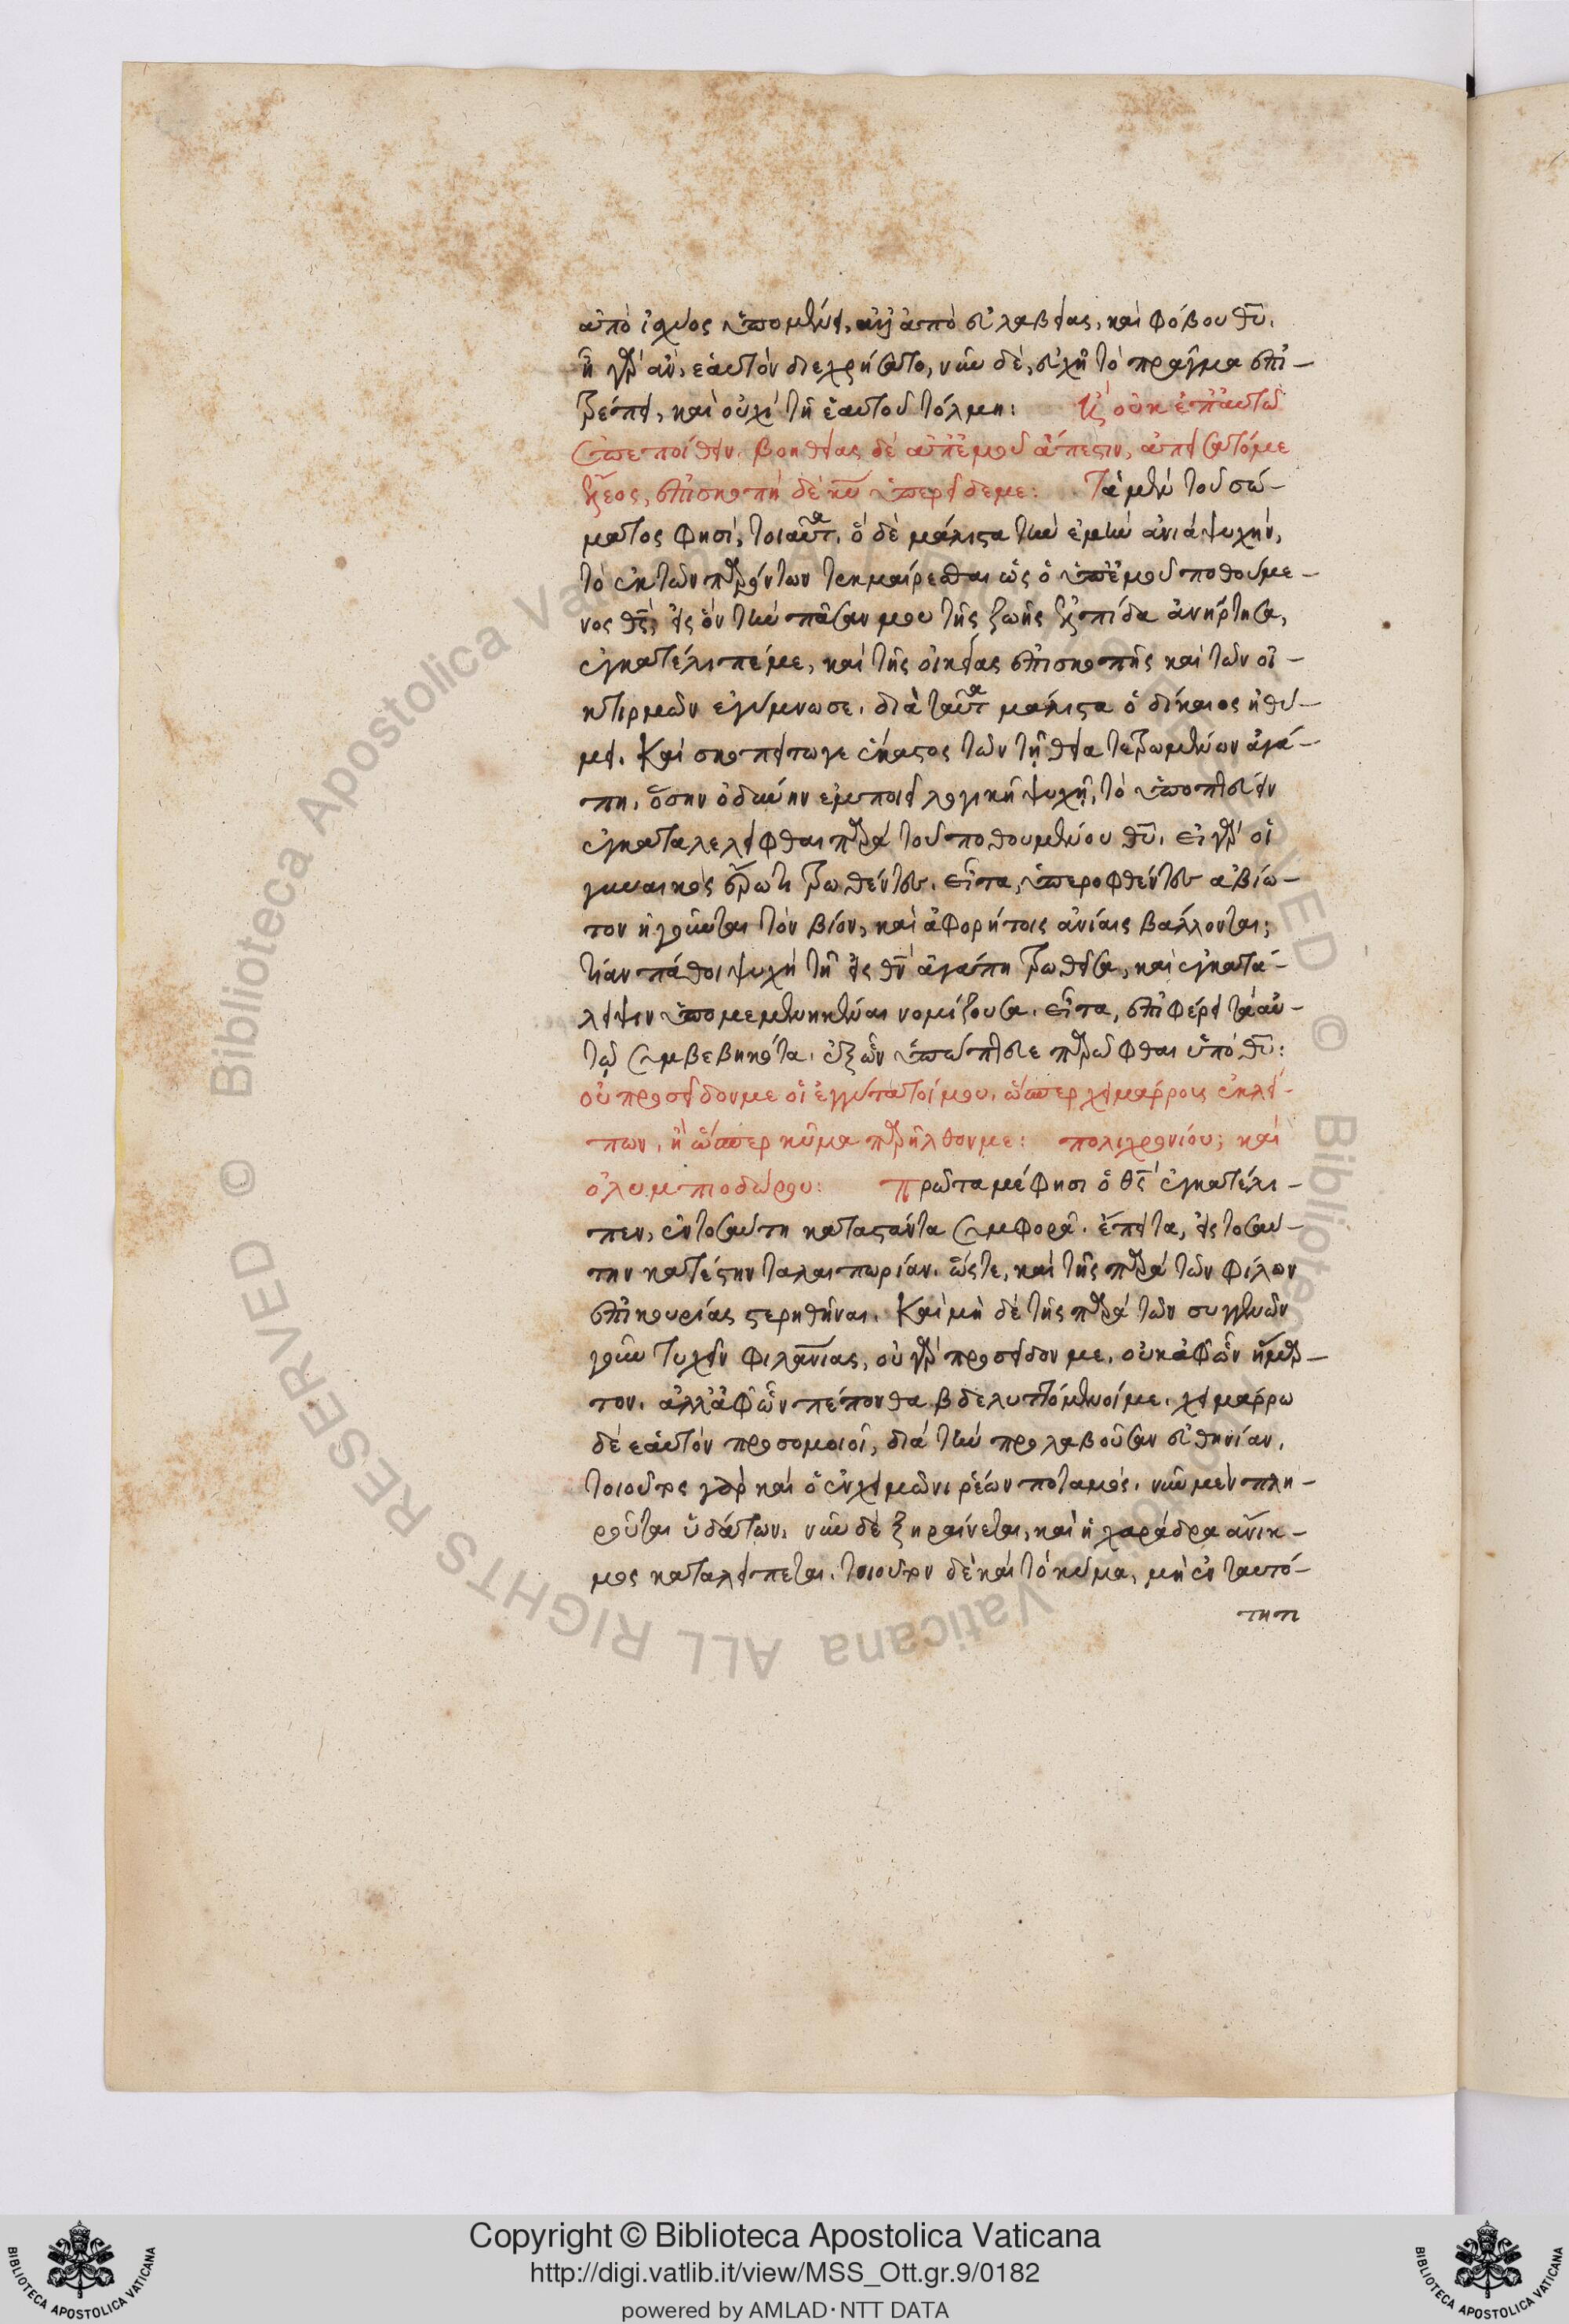 ἀπὸ ἰσχύος ὑπομένει, ἀλλ' ἀπὸ εὐλαβείας, καὶ φόβου θῦ.
ἢ γὰρ ἂν, ἑαυτὸν διεχρήσατο, νῦν δὲ, εὐχῇ τὸ πρᾶγμα ἐπι-
τρέπει, καὶ οὐχὶ τῇ ἑαυτοῦ τόλμῃ: ἢ οὐκ ἐπ' αὐτῷ
ἐπεποίθειν. βοήθειας δὲ ἀπ' ἐμοῦ ἄπεστιν, ἀπείσατό με
ἔλεος, ἐπισκοπὴ δὲ κῦ ὑπερεῖδέ με: Τὰ μὲν τοῦ σώ-
ματος φησὶ, τοιαῦτα. ὃ δὲ μάλιστα τὴν ἐμὴν ἀνιᾷ ψυχὴν,
τὸ ἐκ τῶν παρόντων τεκμαίρεσθαι ὡς ὁ ὑπ' ἐμοῦ ποθούμε-
νος θς, εἰς ὃν τὴν πᾶσάν μου τῆς ζωῆς ἐλπίδα ἀνήρτησα,
ἐγκατέλιπέ με, καὶ τῆς οἰκείας ἐπισκοπῆς καὶ τῶν οἰ-
κτιρμῶν ἐγύμνωσε. διὰ ταῦτα μάλιστα ὁ δίκαιος ἠθύ-
μει. Καὶ σκοπείτω γε ἕκαστος τῶν τῇ θεία τετρωμένων ἀγά-
πῃ, ὅσην ὀδύνην ἐμποιεῖ λογικῇ ψυχῇ, τὸ ὑποπτεύειν
ἐγκαταλελεῖφθαι παρὰ τοῦ ποθουμένου θῦ. εἰ γὰρ οἱ
γυναικὸς ἔρωτι τρωθέντες, εἶτα, ὑπεροφθέντες ἀβίω-
τον ἡγοῦνται τὸν βίον, καὶ ἀφορήτοις ἀνίαις βάλλονται;
τί ἂν πάθοι ψυχὴ τῇ εἰς θν ἀγάπῃ τρωθεῖσα, καὶ ἐγκατά-
λειψιν ὑπομεμενηκέναι νομίζουσα. εἶτα, ἐπιφέρει τὰ αὐ-
τῷ συμβεβηκότα. ἐξ ὧν ὑπώπτευε παρῶφθαι ὑπὸ θῦ:
οὐ προσεῖδόν με οἱ ἐγγύτατοί μου. ὥσπερ χειμάρρους ἐκλεί-
πων, ἢ ὥσπερ κῦμα παρῆλθόν με: πολιχρονίου; καὶ
ὀλυμπιοδώρου: Πρῶτα μέ φησι ὁ θς ἐγκατέλι-
πεν, ἐν τοσαύτῃ καταστάντα συμφορᾷ. ἔπειτα, εἰς τοσαύ-
την κατέστην ταλαιπωρίαν. ὥστε, καὶ τῆς παρὰ τῶν φίλων
ἐπικουρίας στερηθῆναι. Καὶ μὴ δὲ τῆς παρὰ τῶν συγγενῶν
γοῦν τυχεῖν φιλανίας, οὐ γὰρ προσεῖδόν με. οὐκ ἀφ' ὧν ἥμαρ-
τον. ἀλλ' ἀφ' ὧν πέπονθα βδελυττόμενοί με. χειμάρρω
δὲ ἑαυτὸν προσομοιοῖ, διὰ τὴν προλαβοῦσαν εὐθηνίαν.
τοιοῦτος γὰρ καὶ ὁ ἐν χειμῶνι ῥέων ποταμὸς. νῦν μὲν πλη-
ροῦται ὑδάτων. νῦν δὲ ξηραίνεται, καὶ ἡ χαράδρα ἄνικ-
μος καταλείπεται. τοιοῦτον δὲ καὶ τὸ κῦμα, μὴ ἐν ταυτό-
τητι
Copyright © Biblioteca Apostolica Vaticana
http://digi.vatlib.it/view/MSS_Ott.gr.9/0182
powered by AMLAD·NTT DATA